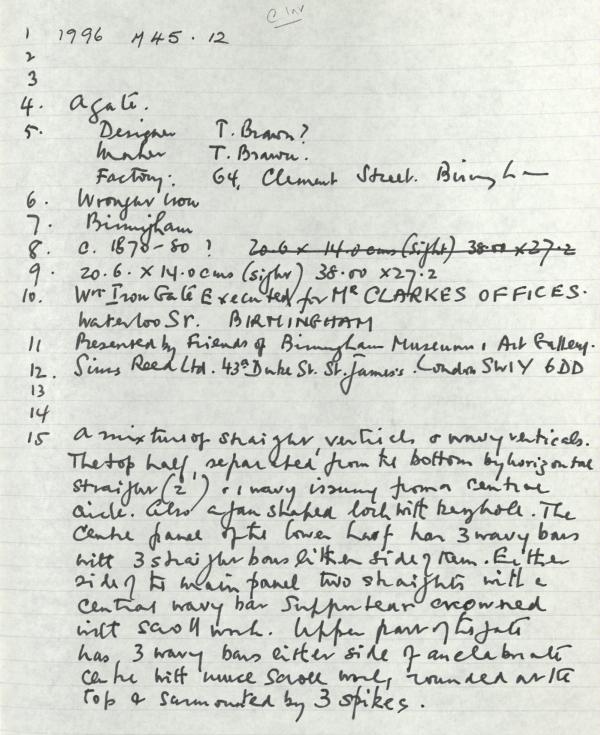 C Inv
1 1996 M45.12
2
3
4. A gate.
5. Designer T. Brawn?
Maker T. Brawn.
Factory: 64, Clement Street. Birmingham
6. Wrought iron
7. Birmingham
8. c. 1870-80 ? 20.6 x 14.0 cms (sight) 38.00 x 27.2
9. 20.6. x 14.0 cms (sight) 38.00 x 27.2
10. Wrt Iron Gate Executed for Mr CLARKES OFFICES.
Waterloo St. BIRMINGHAM
11 Presented by Friends of Birmingham Museums & Art Gallery.
12. Sims Reed Ltd. 43a Duke St. St. James's. London SW1Y 6DD
13
14
15 A mixture of straight, verticals & wavy verticals.
The top half, separated from the bottom by horizontal
straight (2) & 1 wavy issuing from a central
circle. Also a fan shaped lock with keyhole. The
centre panel of the lower half has 3 wavy bars
with 3 straight bars either side of them. Either
side of the main panel two straights with a
central wavy bar crowned
with scroll work. Upper part of the gate
has 3 wavy bars either side of an elaborate
centre with much scroll work, rounded at the
top & surmounted by 3 spikes.